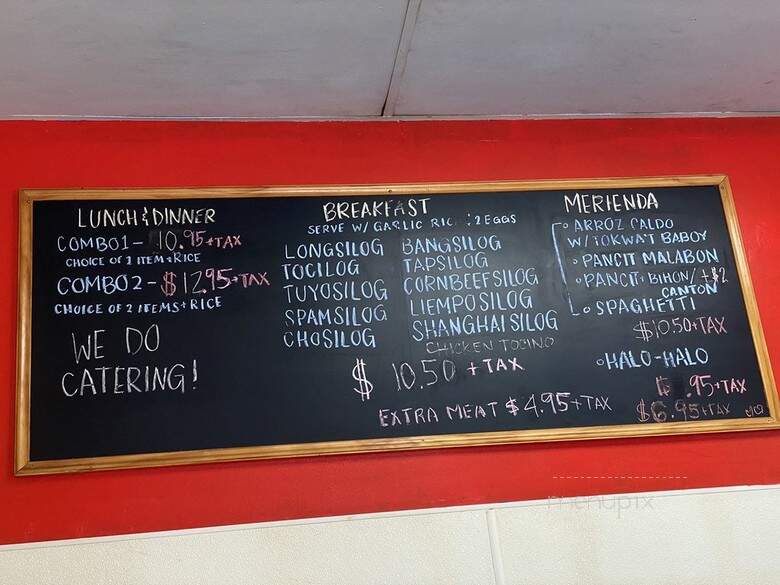 LUNCH & DINNER
COMBO 1 - 10.95 + TAX
CHOICE OF 1 ITEM + RICE
COMBO 2 - $12.95 + TAX
CHOICE OF 2 ITEMS + RICE
WE DO
CATERING!
BREAKFAST
SERVE W/ GARLIC RICE & 2 EGGS
LONGSILOG
TOCILOG
TUYOSILOG
SPAMSILOG
CHOSILOG
BANGSILOG
TAPSILOG
CORNBEEFSILOG
LIEMPOSILOG
SHANGHAISILOG
CHICKEN TOCINO
$ 10.50 + TAX
EXTRA MEAT $4.95 + TAX
MERIENDA
ARROZ CALDO
W/ TOKWA'T BABOY
PANCIT MALABON
PANCIT BIHON / + $2
CANTON
SPAGHETTI
$10.50 + TAX
HALO-HALO
.95 + TAX
$6.95 + TAX
menupix